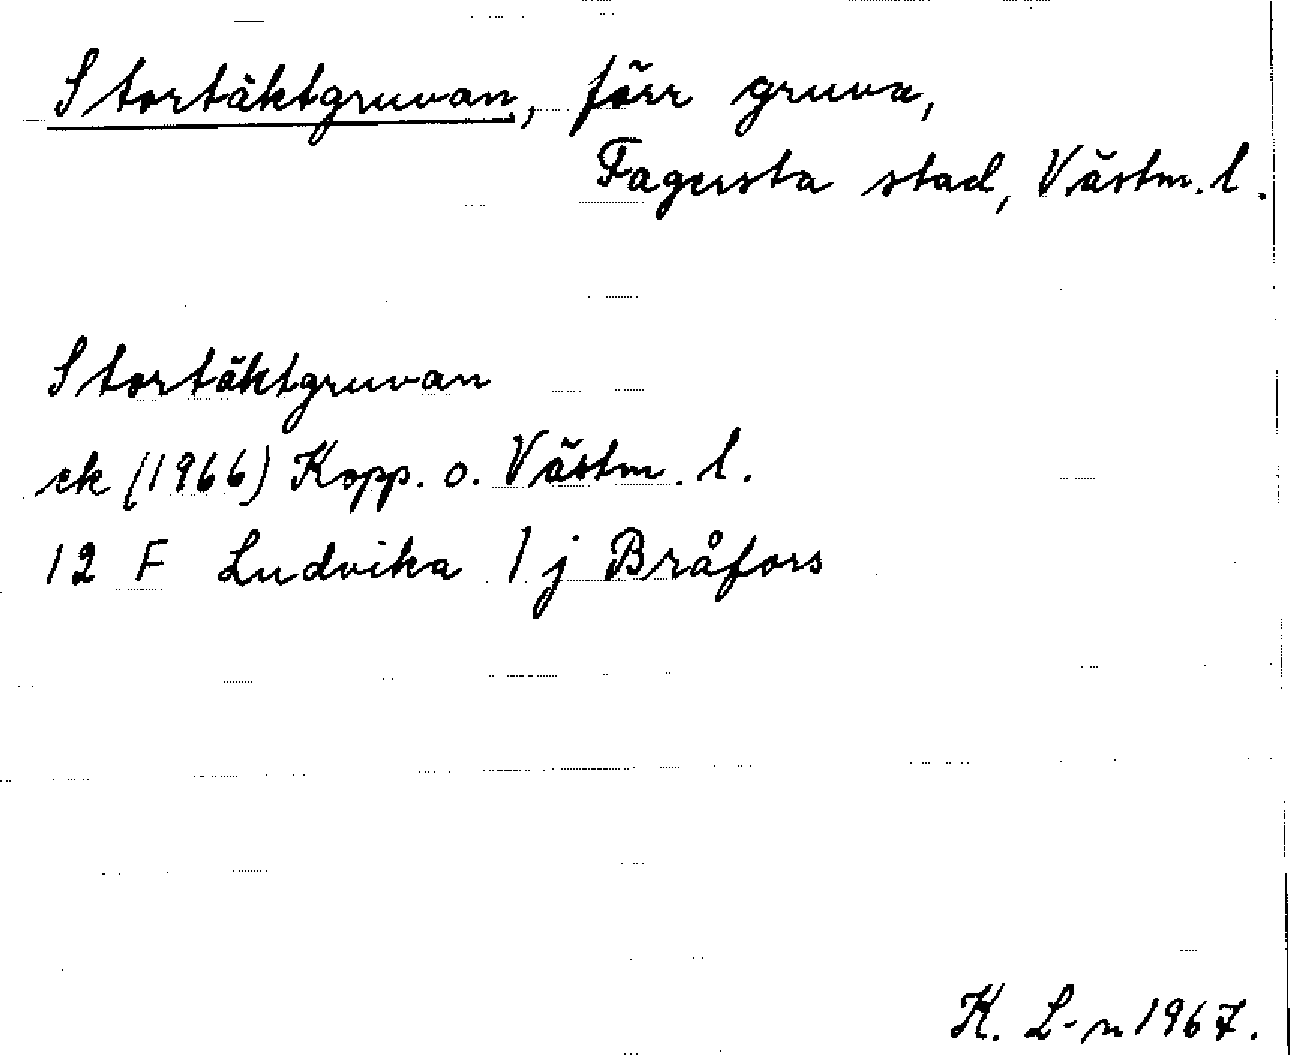 Stortäktgruvan, förr gruva,
Fagersta stad, Västm. l.
Stortäktgruvan
ek (1966) Kopp. o. Västm. l.
12 F Ludvika 1 j Bråfors
K. L-n 1967.